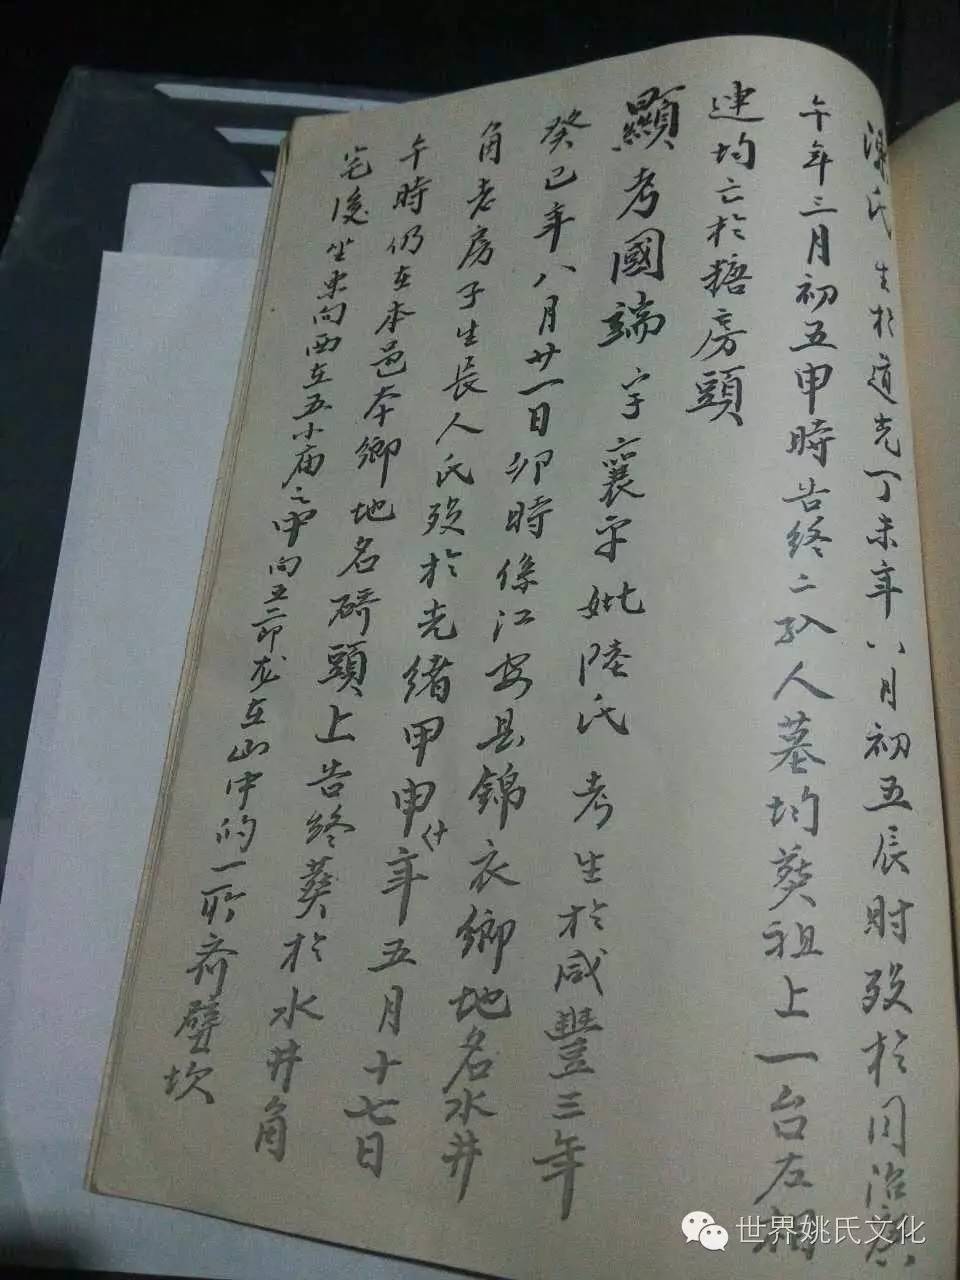 陳氏生於道光丁未年八月初五辰時歿於同治庚
午年三月初五申時告終二孖人墓均葬祖上一台左
連均亡於糖房頭
顯考國端字襄平妣陸氏考生於咸豐三年
癸巳年八月廿一日卯時係江安县錦衣鄉地名水井
角老房子生長人氏歿於光緒甲申什年五月十七日
午時仍在本邑本鄉地名碕頭上告終葬於水井角
宅後坐東向西在五小庙之中向五二卯龙在山中的一所齐壁坎
世界姚氏文化